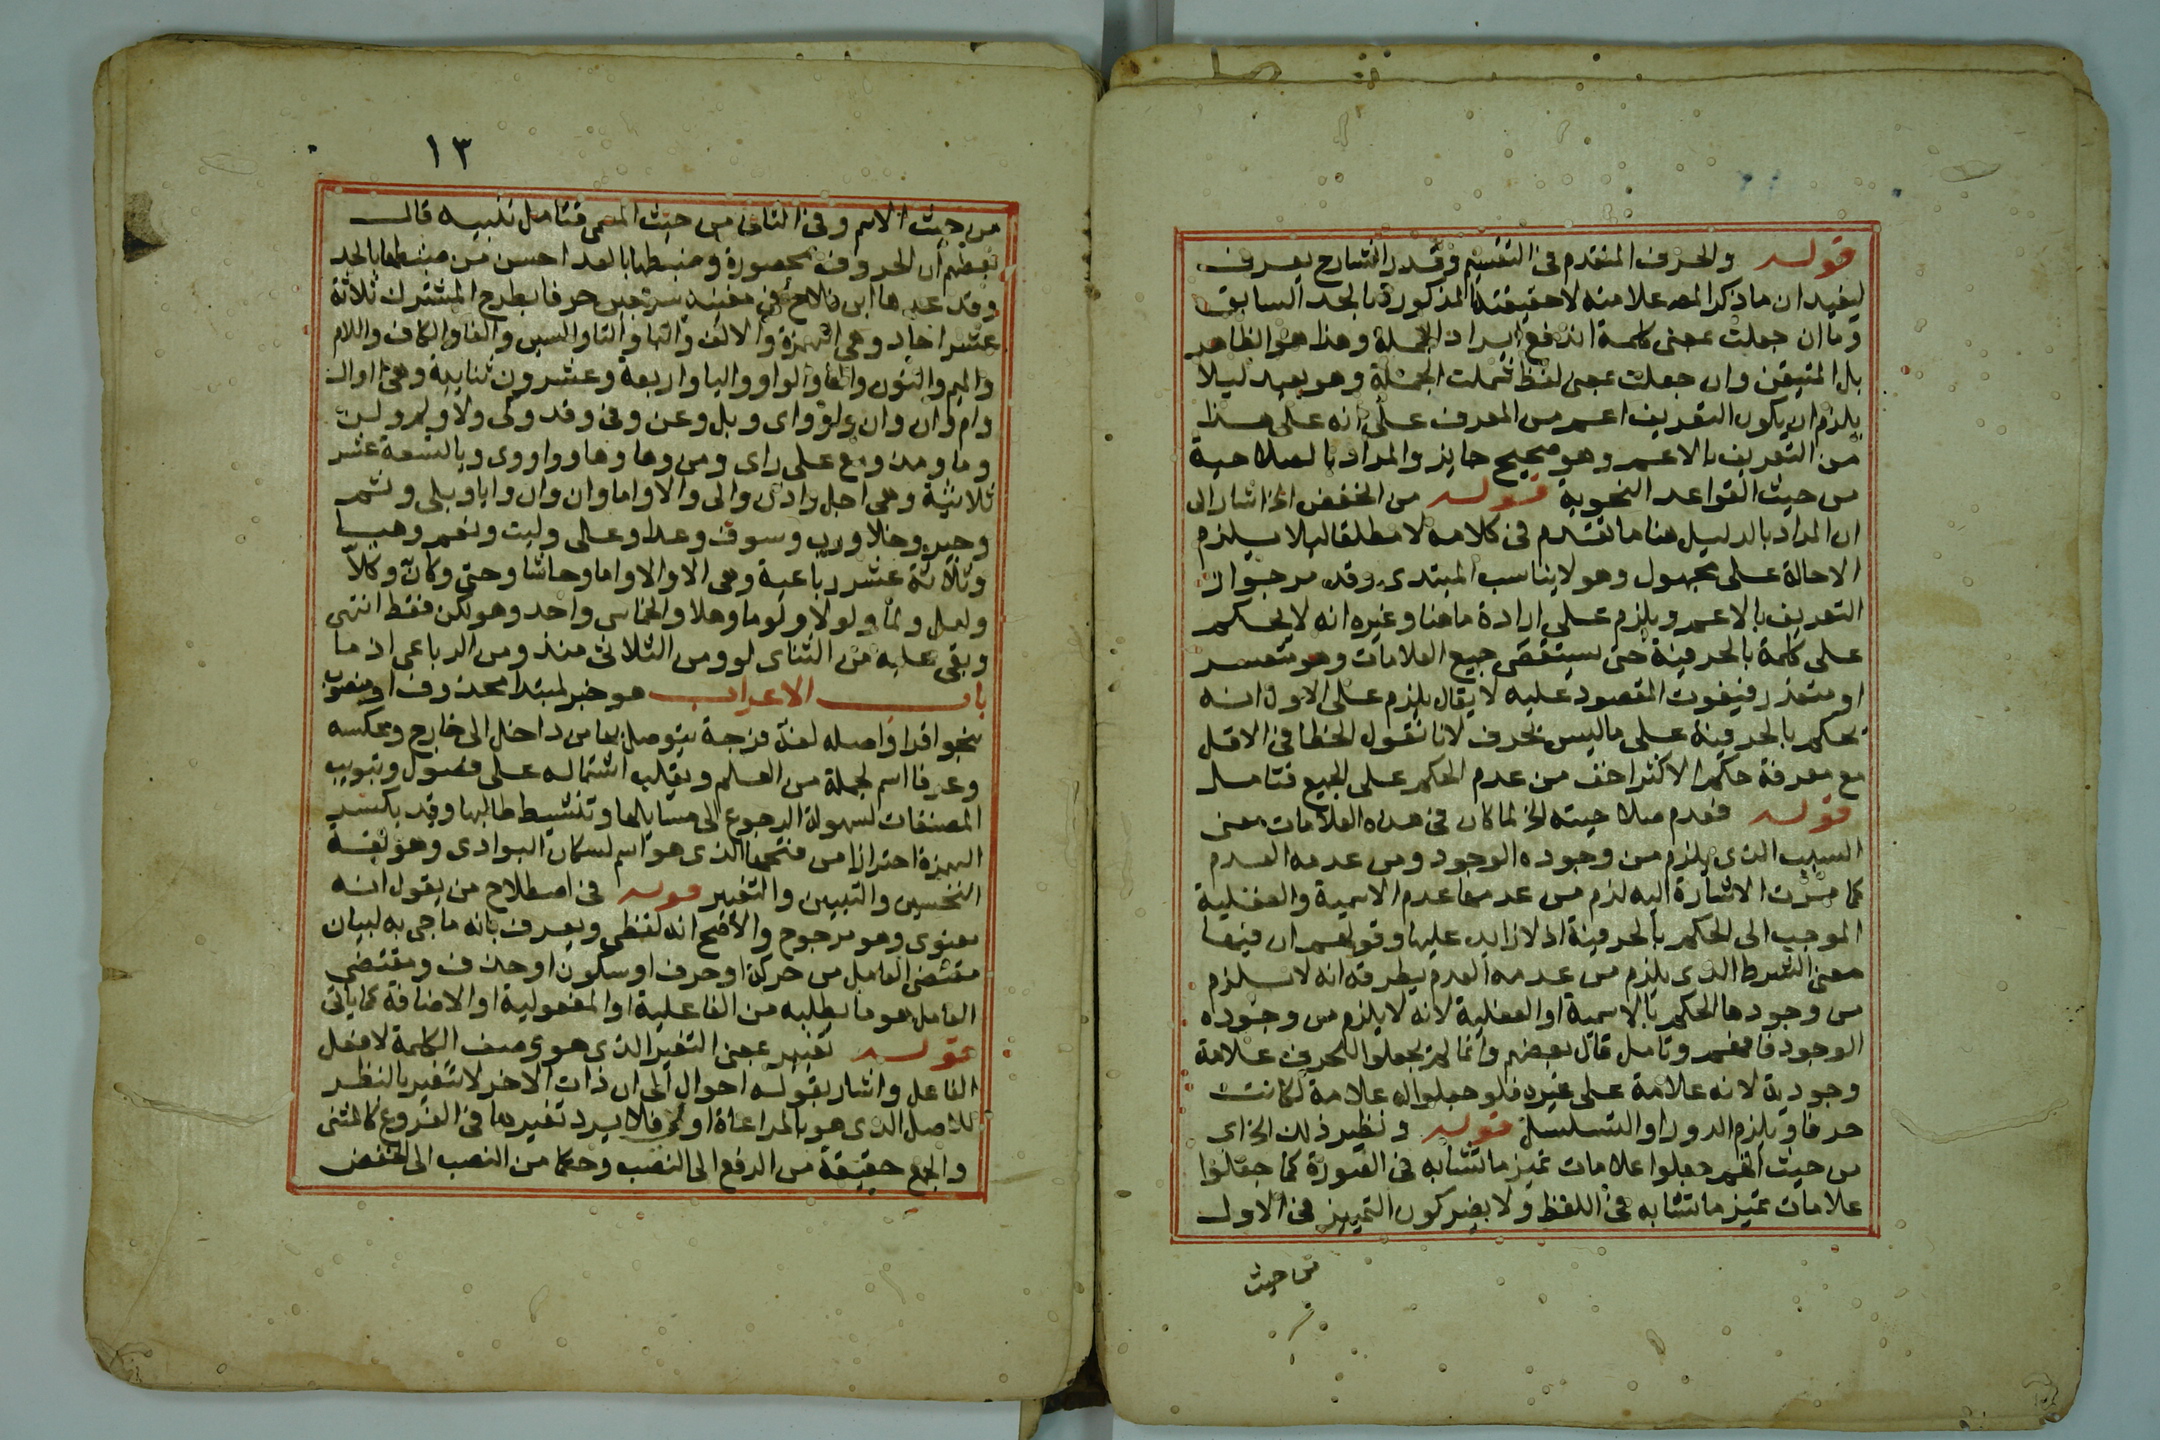 قوله والحرف المتقدم في التقسيم وقدر الشارح يعرف
ليفيد ان ما ذكر المص علامته لا حقيقته المذكورة بالحد السابق
وما ان جعلت بمعنى كلمة اندفع ايراد الجملة وهذا هو الظاهر
بل المتيقن وان جعلت بمعنى لفظ شملت الجملة وهو بعيد ليلا
يلزم ان يكون التعريف اعم من المعرف على انه على هذا
من التعريف بالاعم وهو صحيح جايز والمراد بالصلاحية
من حيث القواعد النحوية قوله من الخفض الخ اشار الى
ان المراد بالدليل هنا ما تقدم في كلامه لا مطلقا ليلا يلزم
الاحالة على مجهول وهو لا يناسب المبتدي وقد مر جواز
التعريف بالاعم ويلزم على ارادة ما هنا وغيره انه لا يحكم
على كلمة بالحرفية حتى يستقصى جميع العلامات وهو متعسر
او متعذر فيفوت المقصود عليه لا يقال يلزم على الاول انه
يحكم بالحرفية على ما ليس بحرف لانا نقول الخطا في الاقل
مع معرفة حكم الاكثر اخف من عدم الحكم على الجميع فتامل
قوله فعدم صلاحيته الخ لما كان في هذه العلامات معنى
السبب الذي يلزم من وجوده الوجود ومن عدمه العدم
كما مرت الاشارة اليه لزم من عدمها عدم الاسمية والفعلية
الموجب الى الحكم بالحرفية اذ لا زايد عليها وقولهم ان فيها
معنى الشرط الذي يلزم من عدمه العدم يطرقه انه لا يلزم
من وجودها الحكم بالاسمية او الفعلية لانه لا يلزم من وجوده
الوجود فافهم وتامل قال بعضهم وانما لم يجعلوا للحرف علامة
وجودية لانه علامة على غيره فلو جعلوا له علامة لكانت
حرفا ويلزم الدور او التسلسل قوله ونظير ذلك الخ اي
من حيث انهم جعلوا علامات تميز ما تشابه في الصورة كما جعلوا
علامات تميز ما تشابه في اللفظ ولا يضر كون التمييز في الاول
من حيث
١٣
من حيث الاسم وفي الثاني من حيث المسمى فتامل تنبيه قال
بعضهم ان الحروف محصورة وضبطها بالعد احسن من ضبطها بالحد
وقد عدها ابن فلاح في مغنيه سبعين حرفا بطرح المشترك ثلاثة
عشر احاد وهي الهمزة والالف والها والتا والسين والفا والكاف واللام
والميم والنون والواو واليا واربعة وعشرون ثنايية وهي ا وال
وام وان وان ولو واي وبل وعن وفي وقد وكي ولا ولم ولن
وما ومذ ومع على راي ومن وها وها ووا ووي ويا وتسعة عشر
ثلاثية وهي اجل واذن والى والا واما وان وان وايا وبلى وثم
وجير وخلا ورب وسوف وعدا وعلى وليت ونعم وهيا
وثلاثة عشر رباعية وهي الا والا واما وحاشا وحتى وكان وكلا
ولعل ولما ولولا ولوما وهلا والخماسي واحد وهو لكن فقط انتهى
وبقي عليه من الثناي لو ومن الثلاثي منذ ومن الرباعي اذ ما
باب الاعراب هو خبر لمبتدا محذوف او منصوب
بنحو اقرا واصله لغة فرجة يتوصل بها من داخل الى خارج وعكسه
وعرفا اسم لجملة من العلم ويغلب اشتماله على فصول وتبويب
المصنفات لسهولة الرجوع الى مسايلها وتنشيط طالبها وقيد بكسر
الهمزة احترازا من فتحها الذي هو اسم لسكان البوادي وهو لغة
التحسين والتبيين والتغيير قوله في اصطلاح من يقول انه
معنوي وهو مرجوح والاصح انه لفظي ويعرف بانه ما جي به لبيان
مقتضى العامل من حركة او حرف او سكون او حذف ومقتضى
العامل هو ما يطلبه من الفاعلية او المفعولية او الاضافة كما ياتي
قوله تغيير بمعنى التغير الذي هو وصف الكلمة لا فعل
الفاعل واشار بقوله احوال الى ان ذات الاخر لا تتغير بالنظر
للاصل الذي هو بالمراعاة اولى فلا يرد تغيرها في الفروع كالمثنى
والجمع حقيقة من الرفع الى النصب وحكما من النصب الى الخفض